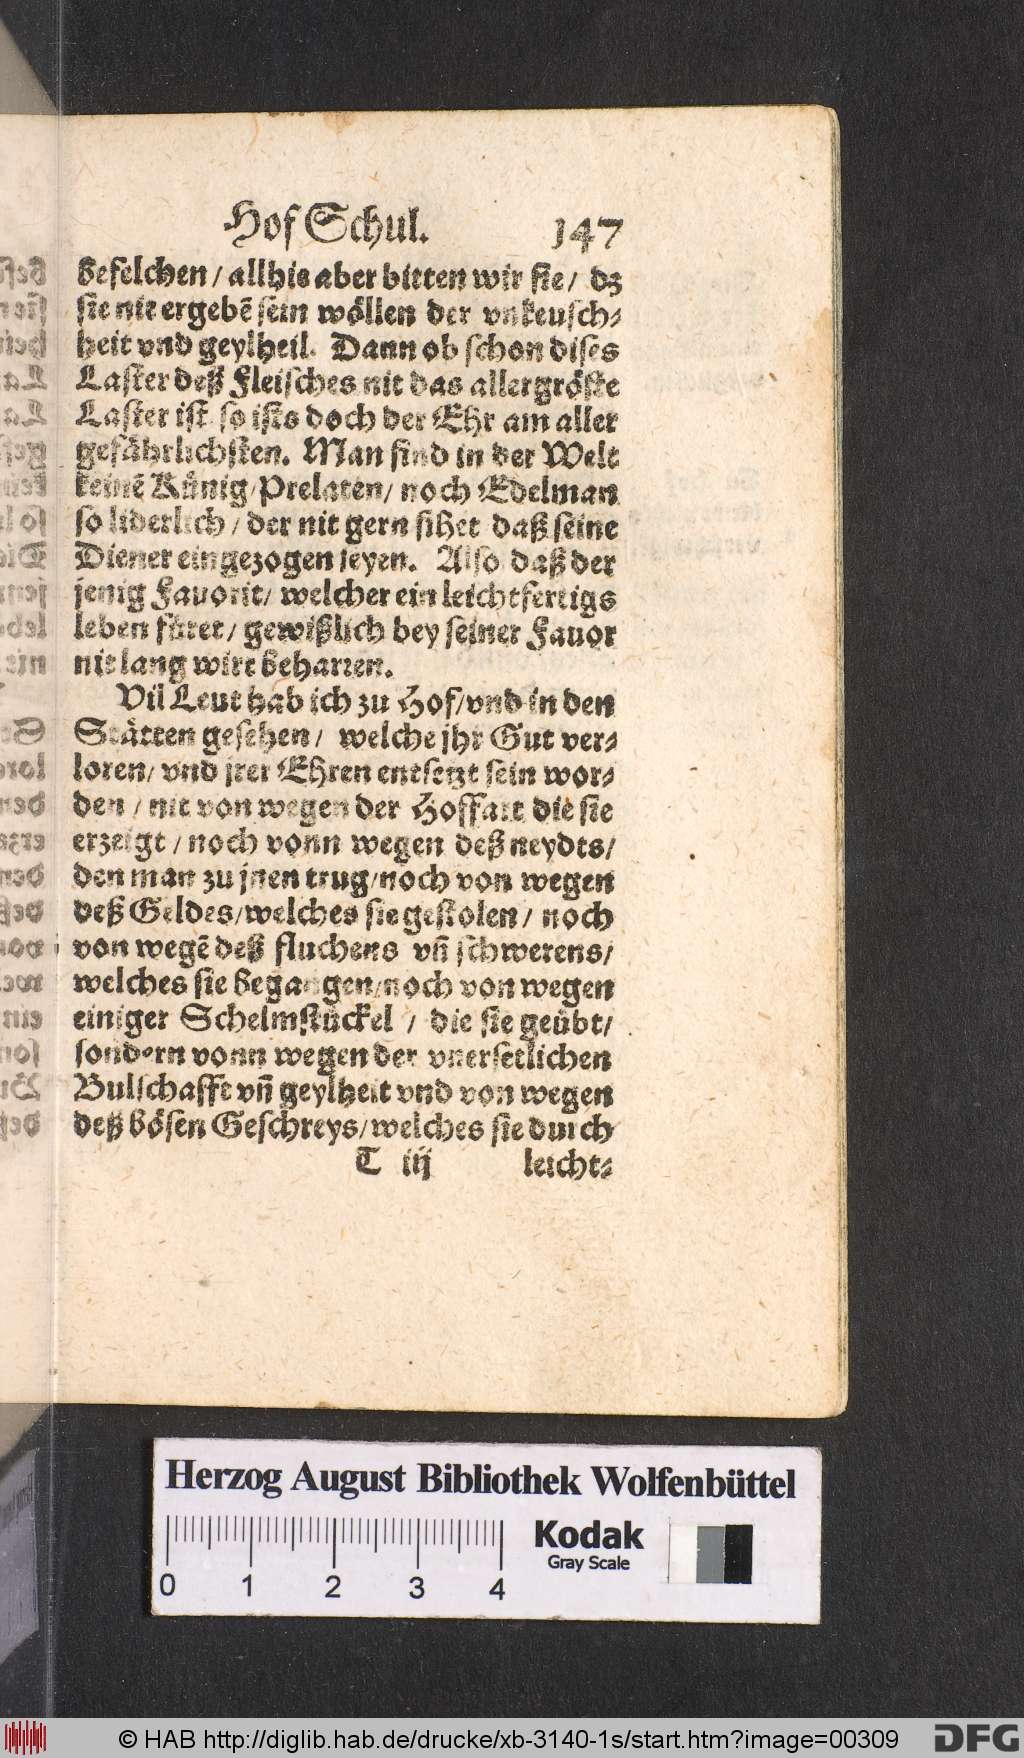 Hof Schul. 147
befelchen / allhie aber bitten wir sie / dz
sie nit ergebẽ sein wöllen der vnkeusch⸗
heit vnd geylheit. Dann ob schon dises
Laster deß Fleisches nit das allergröste
Laster ist so ists doch der Ehr am aller
gefährlichsten. Man find in der Welt
keinẽ Künig / Prelaten / noch Edelman
so liderlich / der nit gern sihet daß seine
Diener eingezogen seyen. Also daß der
jenig Fauorit / welcher ein leichtfertigs
leben füret / gewißlich bey seiner Fauor
nit lang wirt beharren.
Vil Leut hab ich zu Hof / vnd in den
Stätten gesehen / welche jhr Gut ver⸗
loren / vnd jrer Ehren entsetzt sein wor⸗
den / nit von wegen der Hoffart die sie
erzeigt / noch vonn wegen deß neydts /
den man zu jnen trug / noch von wegen
deß Geldes / welches sie gestolen / noch
von wegẽ deß fluchens vñ schwerens /
welches sie begangen / noch von wegen
einiger Schelmstückel / die sie geübt /
sondern vonn wegen der vnersetlichen
Bulschafft vñ geylheit vnd von wegen
deß bösen Geschreys / welches sie durch
T iij leicht⸗
Herzog August Bibliothek Wolfenbüttel
Kodak
Gray Scale
0 1 2 3 4
© HAB http://diglib.hab.de/drucke/xb-3140-1s/start.htm?image=00309 DFG